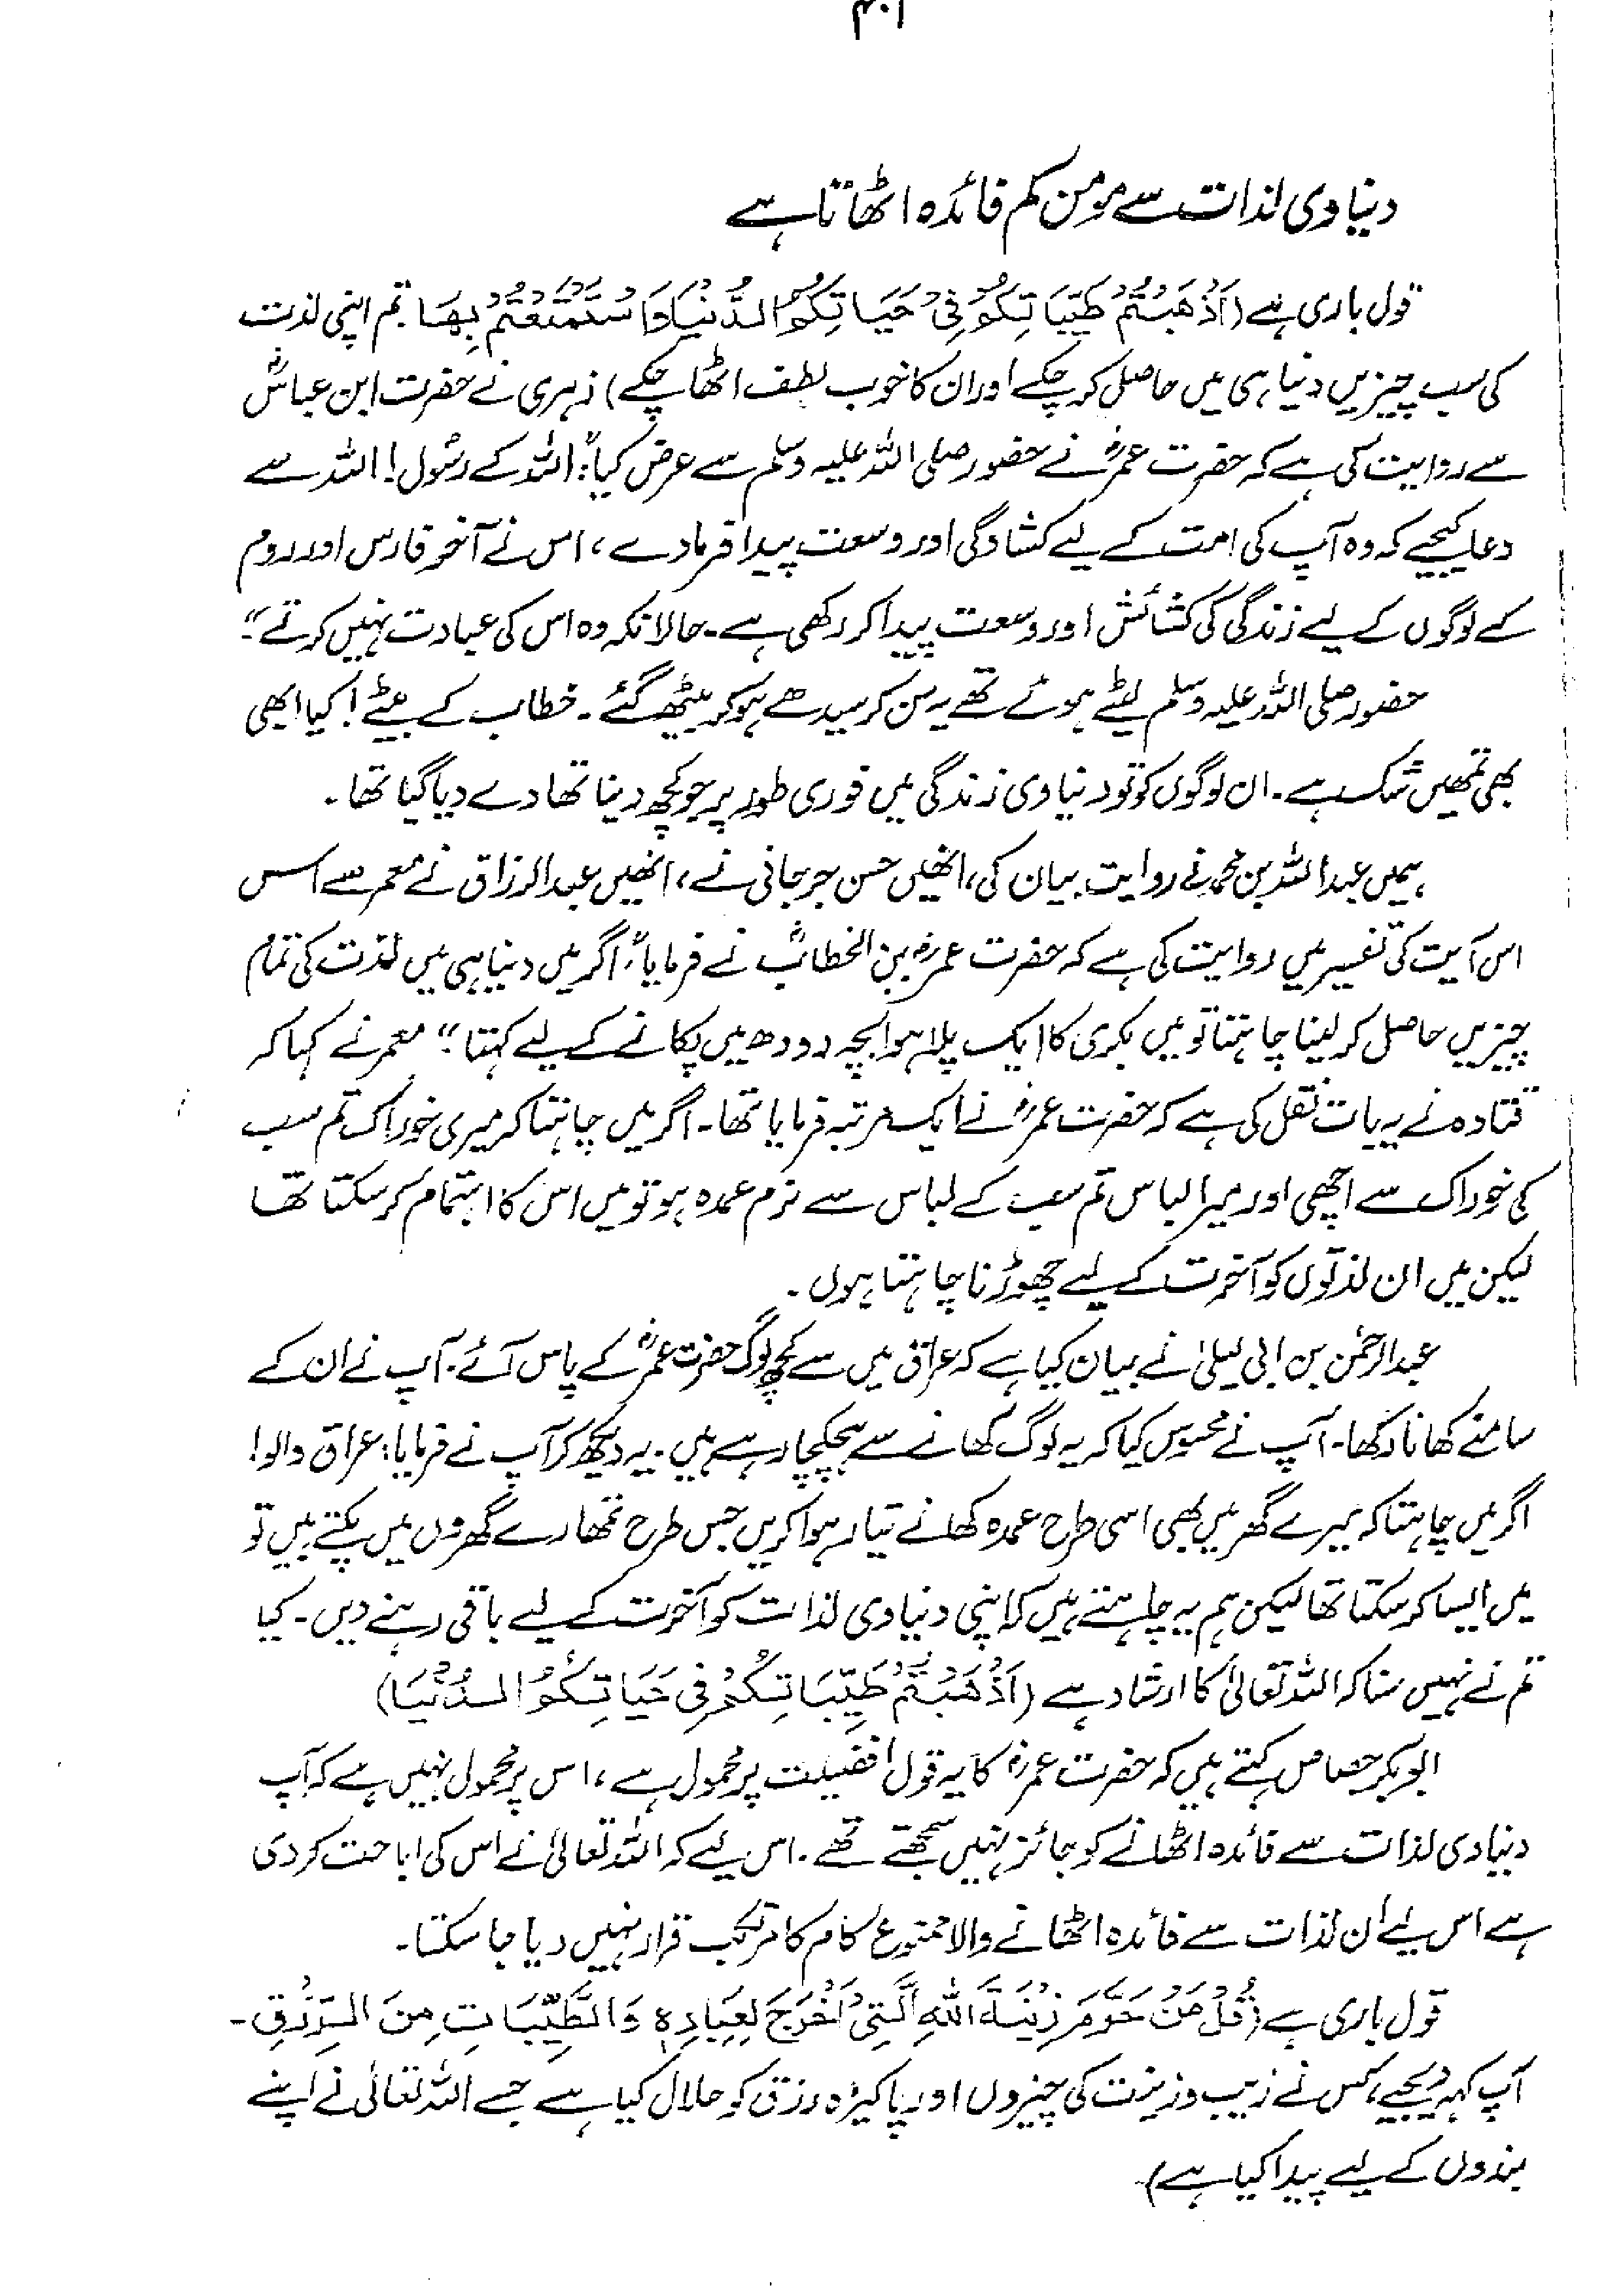 ۴۰۱
دنیاوی لذات سے مومن کم فائدہ اٹھاتا ہے
قول باری ہے (اَذْهَبْتُمْ طَيِّبَاتِكُمْ فِيْ حَيَاتِكُمُ الدُّنْيَا وَاسْتَمْتَعْتُمْ بِهَا تم اپنی لذت
کی سب چیزیں دنیا ہی میں حاصل کر چکے اور ان کا خوب لطف اٹھا چکے) زہری نے حضرت ابن عباسؓ
سے روایت کی ہے کہ حضرت عمرؓ نے حضور صلی اللہ علیہ وسلم سے عرض کیا: "اللہ کے رسول! اللہ سے
دعا کیجیے کہ وہ آپ کی امت کے لیے کشادگی اور وسعت پیدا فرما دے، اس نے آخر فارس اور روم
کے لوگوں کے لیے زندگی کی کشائش اور وسعت پیدا کر رکھی ہے۔ حالانکہ وہ اس کی عبادت نہیں کرتے"۔
حضور صلی اللہ علیہ وسلم لیٹے ہوئے تھے یہ سن کر سیدھے ہو کر بیٹھ گئے۔ خطاب کے بیٹے! کیا ابھی
بھی تمھیں شک ہے۔ ان لوگوں کو تو دنیاوی زندگی میں فوری طور پر جو کچھ دینا تھا دے دیا گیا تھا۔
ہمیں عبداللہ بن محمد نے روایت بیان کی، انھیں حسن جرجانی نے، انھیں عبدالرزاق نے معمر سے اس
اس آیت کی تفسیر میں روایت کی ہے کہ حضرت عمرؓ بن الخطابؓ نے فرمایا: "اگر میں دنیا ہی میں لذت کی تمام
چیزیں حاصل کر لینا چاہتا تو میں بکری کا ایک پلا ہوا بچہ دودھ میں پکانے کے لیے کہتا"۔ معمر نے کہا کہ
قتادہ نے یہ بات نقل کی ہے کہ حضرت عمرؓ نے ایک مرتبہ فرمایا تھا۔ اگر میں چاہتا کہ میری خوراک تم سب
کی خوراک سے اچھی اور میرا لباس تم سب کے لباس سے نرم عمدہ ہو تو میں اس کا اہتمام کر سکتا تھا
لیکن میں ان لذتوں کو آخرت کے لیے چھوڑنا چاہتا ہوں۔
عبدالرحمٰن بن ابی لیلیٰ نے بیان کیا ہے کہ عراق میں سے کچھ لوگ حضرت عمرؓ کے پاس آئے۔ آپ نے ان کے
سامنے کھانا رکھا۔ آپ نے محسوس کیا کہ یہ لوگ کھانے سے ہچکچا رہے ہیں۔ یہ دیکھ کر آپ نے فرمایا: عراق والو!
اگر میں چاہتا کہ میرے گھر میں بھی اسی طرح عمدہ کھانے تیار ہوا کریں جس طرح تمھارے گھروں میں پکتے ہیں تو
میں ایسا کر سکتا تھا لیکن ہم یہ چاہتے ہیں کہ اپنی دنیاوی لذات کو آخرت کے لیے باقی رہنے دیں۔ کیا
تم نے نہیں سنا کہ اللہ تعالیٰ کا ارشاد ہے (اَذْهَبْتُمْ طَيِّبَاتِكُمْ فِيْ حَيَاتِكُمُ الدُّنْيَا)
ابوبکر جصاص کہتے ہیں کہ حضرت عمرؓ کا یہ قول افضیلت پر محمول ہے، اس پر محمول نہیں ہے کہ آپ
دنیاوی لذات سے فائدہ اٹھانے کو جائز نہیں سمجھتے تھے۔ اس لیے کہ اللہ تعالیٰ نے اس کی اباحت کر دی
ہے اس لیے ان لذات سے فائدہ اٹھانے والا ممنوع کام کا مرتکب قرار نہیں دیا جا سکتا۔
قول باری ہے (قُلْ مَنْ حَرَّمَ زِيْنَةَ اللهِ الَّتِيْ اَخْرَجَ لِعِبَادِهٖ وَالطَّيِّبَاتِ مِنَ الرِّزْقِ۔
آپ کہہ دیجیے، کس نے زیب و زینت کی چیزوں اور پاکیزہ رزق کو حلال کیا ہے جسے اللہ تعالیٰ نے اپنے
بندوں کے لیے پیدا کیا ہے)